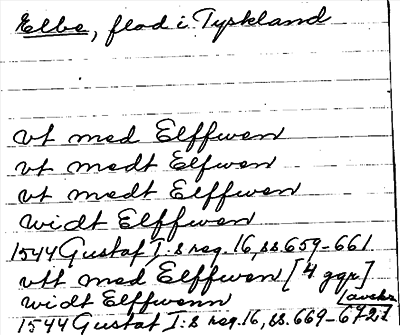 Elbe, flod i Tyskland
vt med Elffwen
vt medt Elfwen
vt medt Elffwen
widt Elffwen
1544 Gustaf I:s reg. 16, ss. 659-661
vtt med Elffwen [4 ggr]
widt Elffwenn
1544 Gustaf I:s reg. 16, ss. 669-672